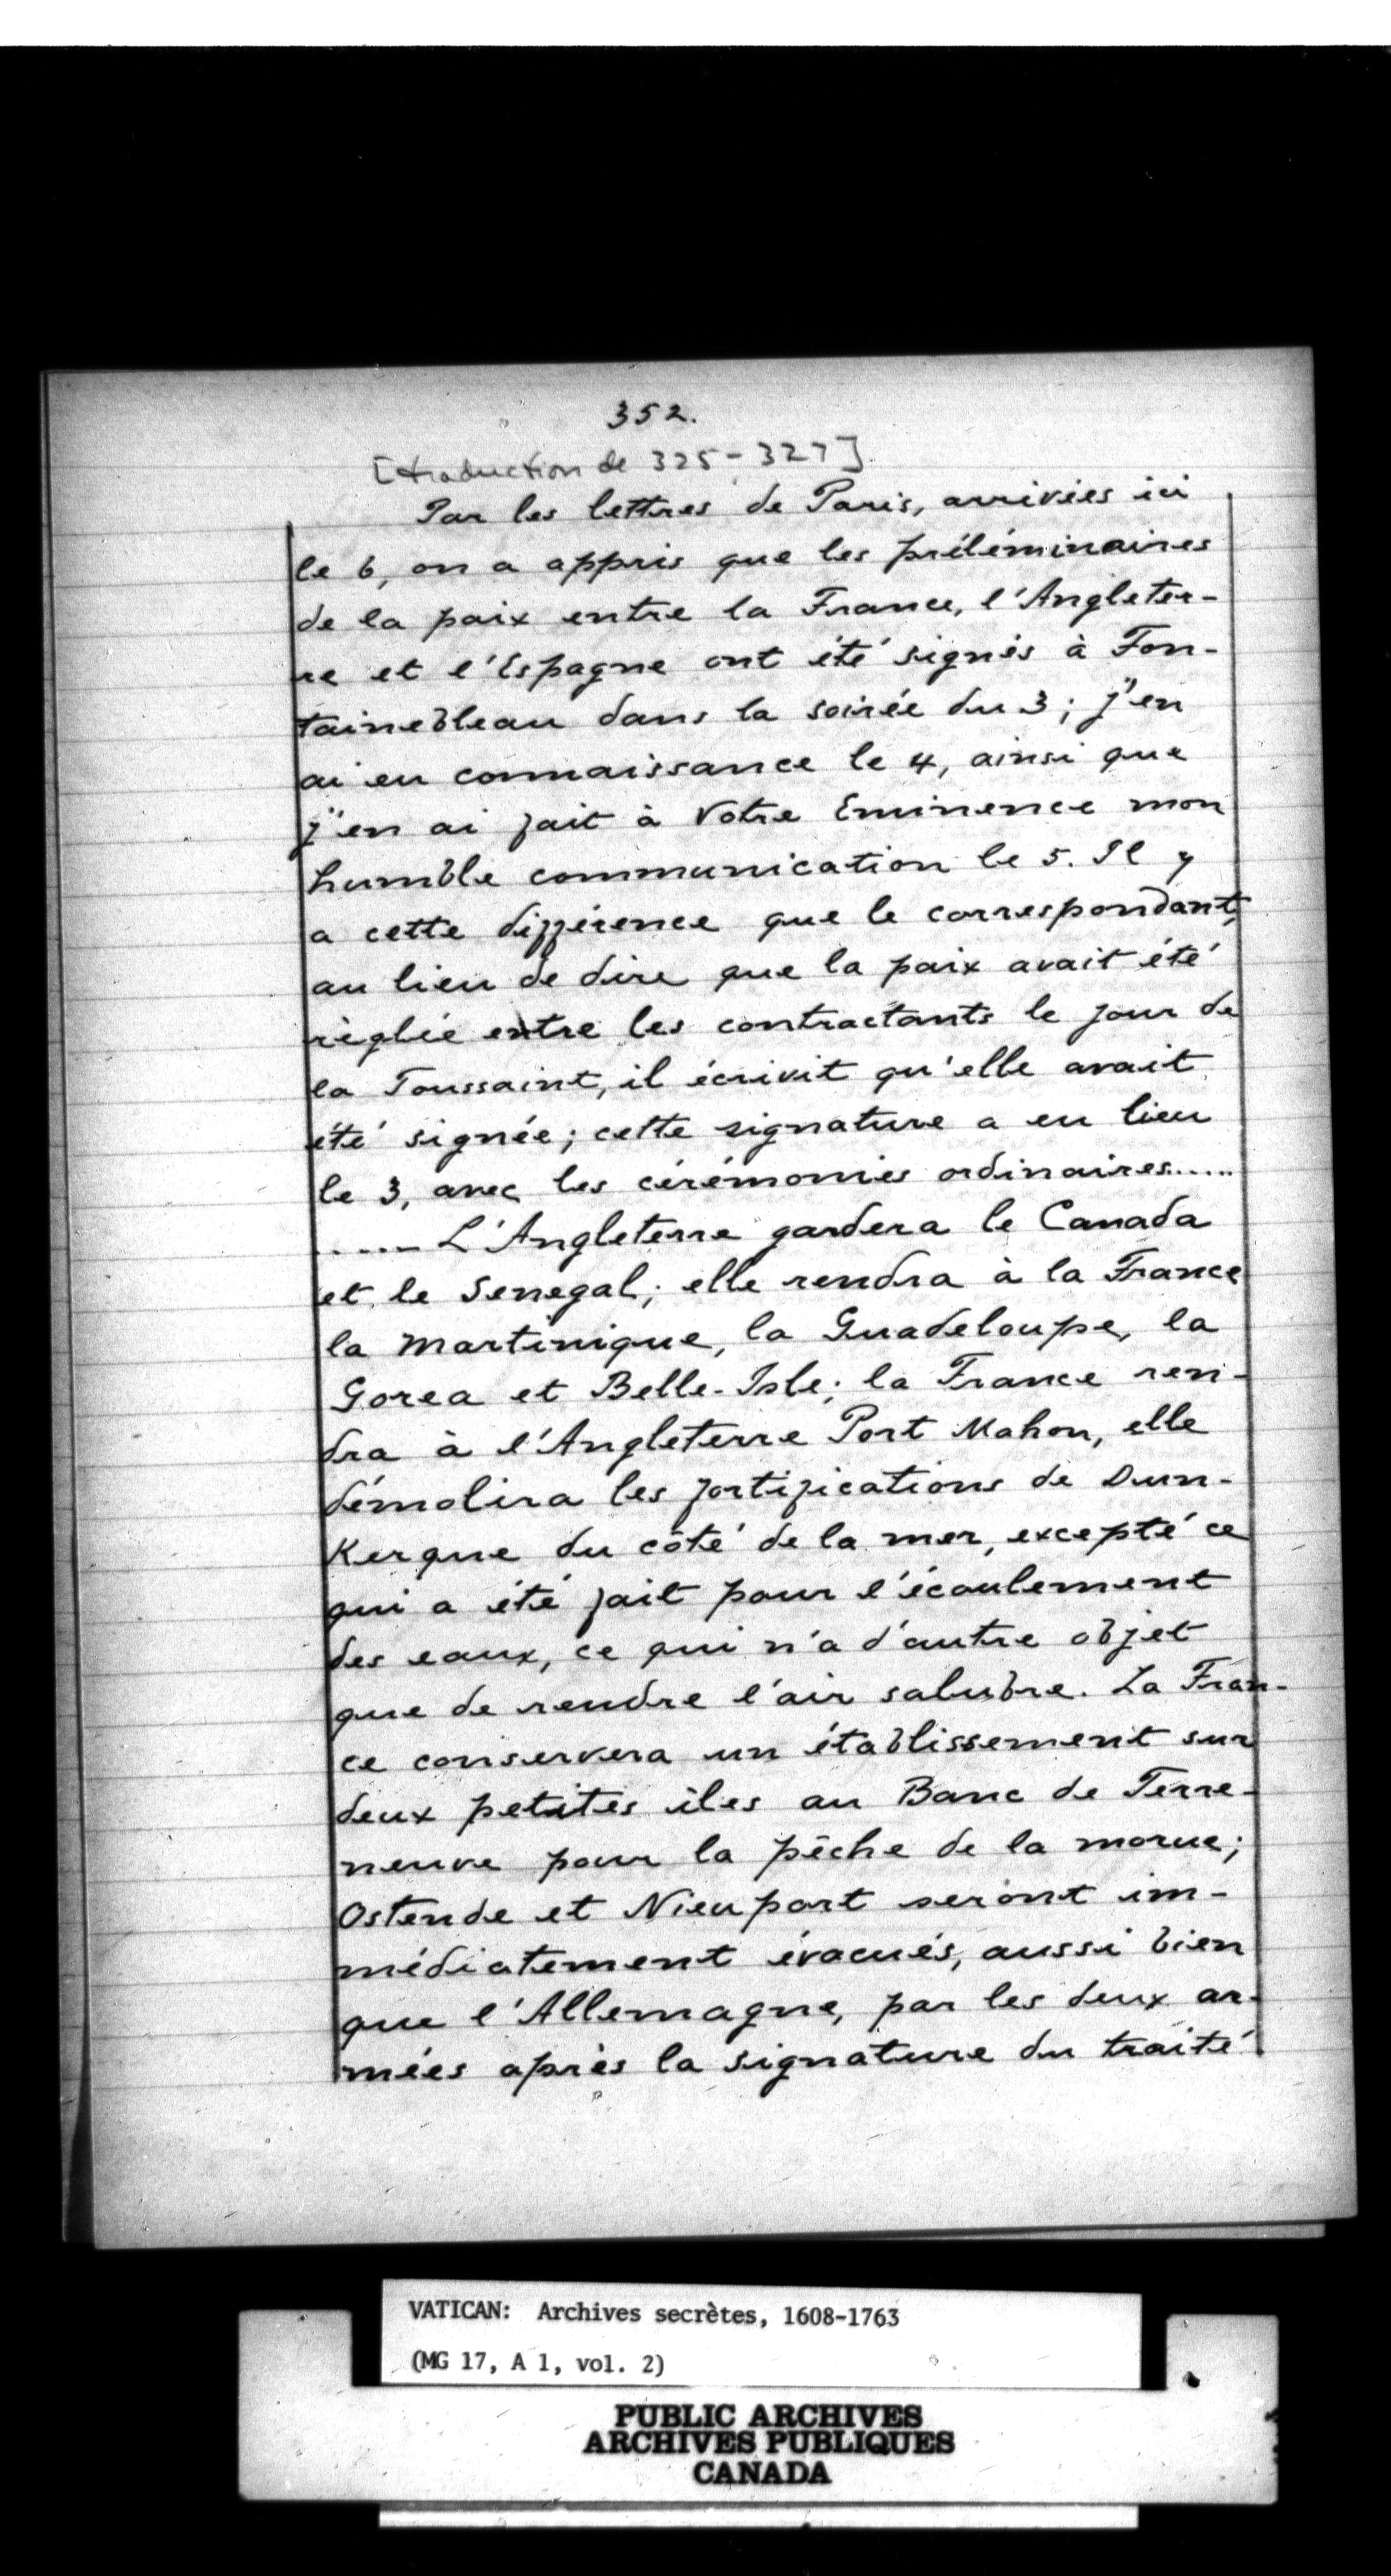 352.
[traduction de 325-327]
Par les lettres de Paris, arrivées ici
le 6, on a appris que les préléminaires
de la paix entre la France, l'Angleter-
re et l'Espagne ont été signés à Fon-
tainebleau dans la soirée du 3; j'en
ai eu connaissance le 4, ainsi que
j'en ai fait à Votre Eminence mon
humble communication le 5. Il y
a cette différence que le correspondant,
au lieu de dire que la paix avait été
règlée entre les contractants le jour de
la Toussaint, il écrivit qu'elle avait
été signée; cette signature a eu lieu
le 3, avec les cérémonies ordinaires.....
.....L'Angleterre gardera le Canada
et le Senegal; elle rendra à la France
la Martinique, la Guadeloupe, la
Gorea et Belle-Isle; la France ren-
dra à l'Angleterre Port Mahon, elle
démolira les fortifications de Dun-
Kerque du côté de la mer, excepté ce
qui a été fait pour l'écoulement
des eaux, ce qui n'a d'autre objet
que de rendre l'air salubre. La Fran-
ce conservera un établissement sur
deux petites îles au Banc de Terre-
neuve pour la pêche de la morue;
Ostende et Nieuport seront im-
médiatement évacués, aussi bien
que l'Allemagne, par les deux ar-
mées après la signature du traité
VATICAN: Archives secrètes, 1608-1763
(MG 17, A 1, vol. 2)
PUBLIC ARCHIVES
ARCHIVES PUBLIQUES
CANADA